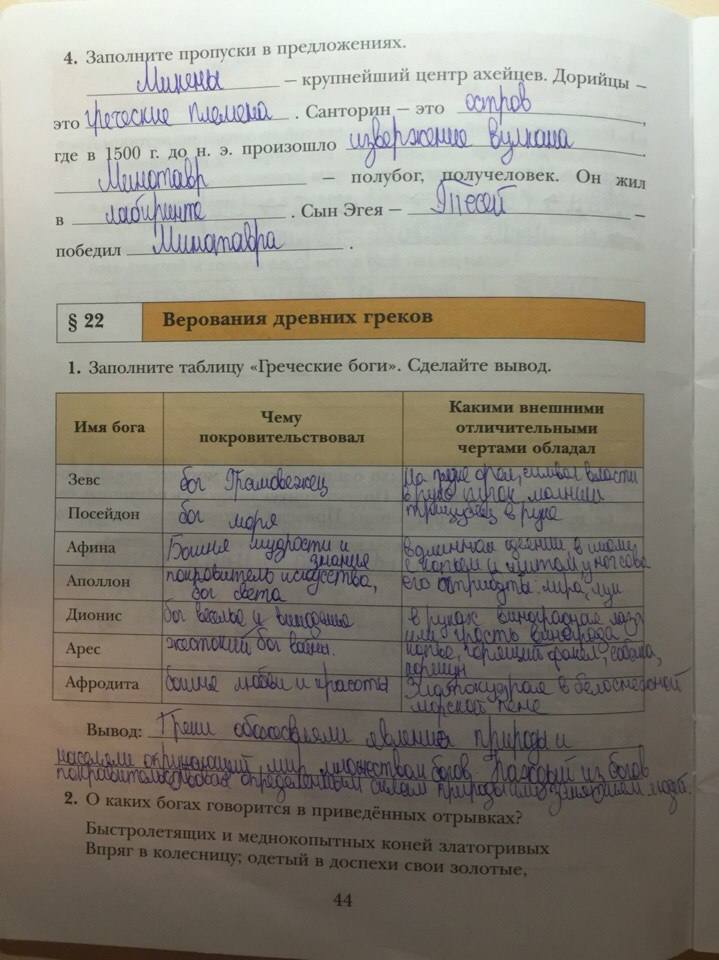 4. Заполните пропуски в предложениях.
Микены — крупнейший центр ахейцев. Дорийцы —
это греческие племена. Санторин — это остров,
где в 1500 г. до н. э. произошло извержение вулкана.
Минотавр — полубог, получеловек. Он жил
в лабиринте. Сын Эгея — Тесей —
победил Минотавра.
§ 22 Верования древних греков
1. Заполните таблицу «Греческие боги». Сделайте вывод.
Имя бога
Чему
покровительствовал
Какими внешними
отличительными
чертами обладал
Зевс
бог Громовержец
На руке орел, символ власти
в руке пучок молний
Посейдон
бог моря
трезубец в руке
Афина
Богиня мудрости и
знанья
в длинном одеянии, в шлеме
с копьем и щитом, у ног сова
Аполлон
покровитель искусства,
бог света
его атрибуты: лира, лук
Дионис
бог веселья и виноделья
в руках виноградная лоза
или гроздь винограда
Арес
жестокий бог войны.
копье, горящий факел, собака,
коршун
Афродита
богиня любви и красоты
Златокудрая в белоснежной
морской пене
Вывод: Греки обожествляли явления природы и
населяли окружающий мир множеством богов. Каждый из богов
покровительствовал определенным силам природы или занятиям людей.
2. О каких богах говорится в приведённых отрывках?
Быстролетящих и меднокопытных коней златогривых
Впряг в колесницу; одетый в доспехи свои золотые,
44